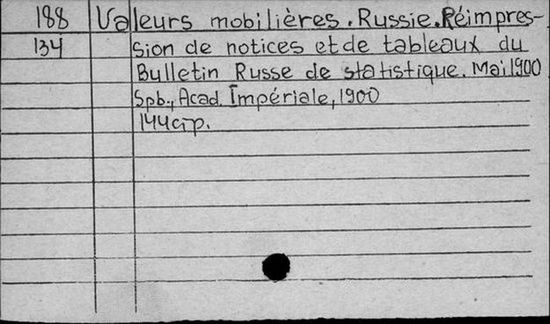 188 Valeurs mobilières. Russie. Réimpres-
134 sion de notices et de tableaux du
Bulletin Russe de statistique. Mai 1900
Spb., Acad. Impériale, 1900
144 стр.